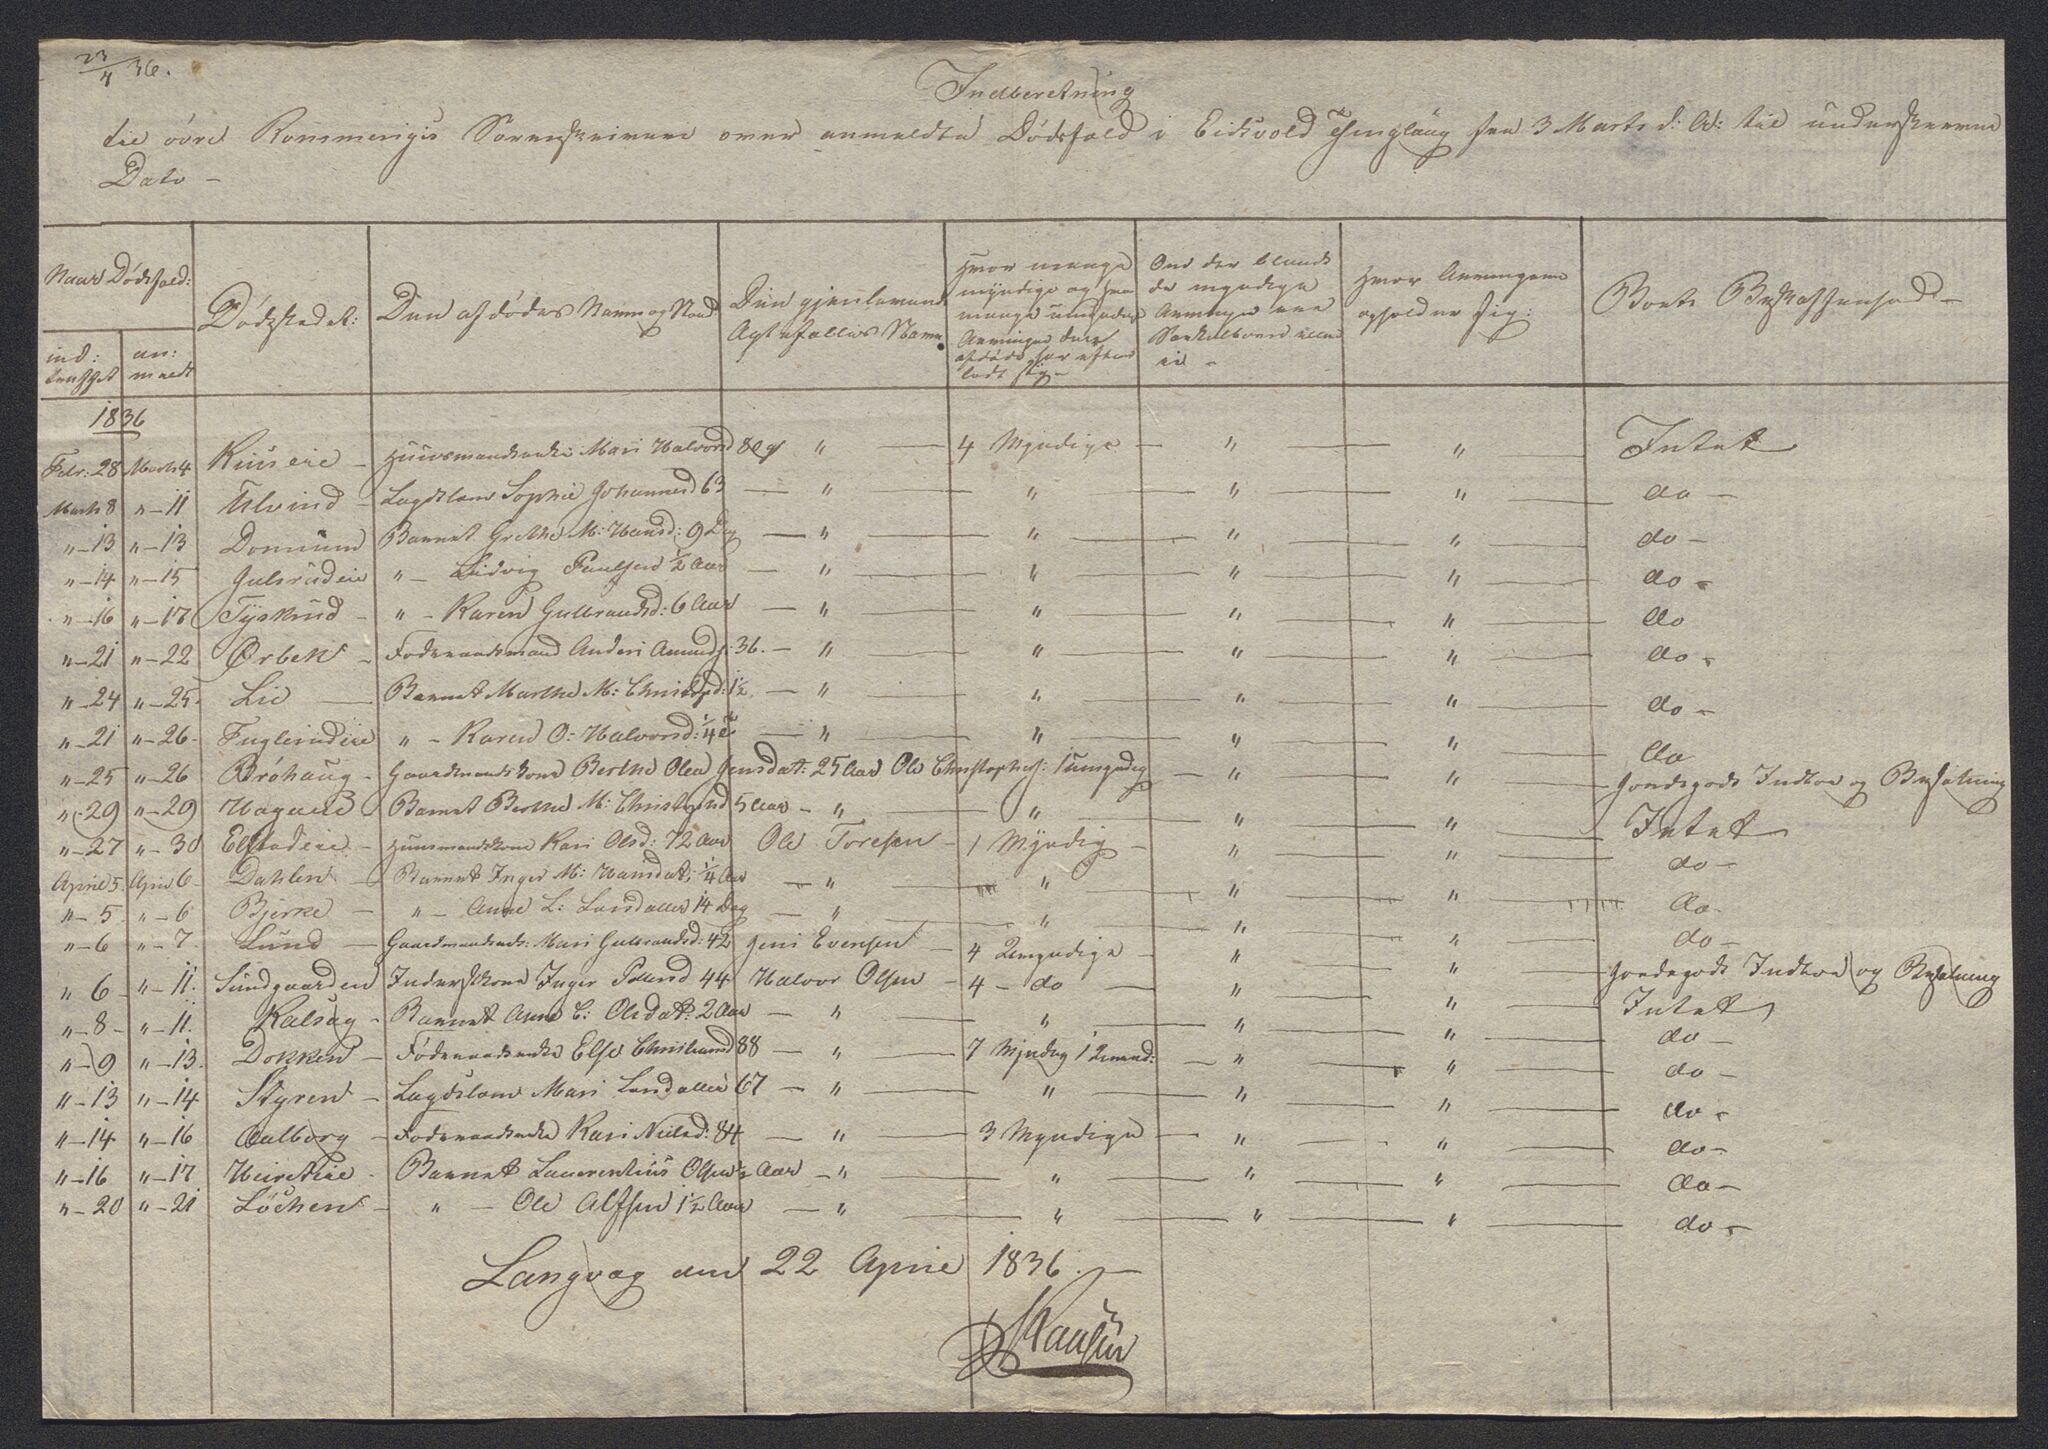 23/4 36.
Indberetning
til övre Rommerigis Sorenskriveri over anmeldte Dødsfald i Eidsvold Thinglaug fra 3 Marts d: A: til underskrevne
Dato –
Naar Dødsfald:
ind: truffet
an: meldt
Dødstedet:
Den afdødes Navn og Stand
Den gjenlevende Ægtefælles Navn.
Hvor mange myndige og hvor mange umyndige Arvinger den afdøde har efterladt sig –
Om der blandt de myndige Arvinger ere Vankelboern eller ei –
Hvor Arvingerne opholder sig:
Boets Beskaffenhed –
1836
Febr: 28 Marts 4 Huusmandsenke Mari Halvorsd 80 " 4 Myndige " " Intet
Marts 8 " 11 Ulvind – Lægdslem Sophie Johannesd 63 " " " " do –
" 13 " 13 Barnet Grethe M: Hansd: 9 Dag " " " " do –
" 14 " 15 Julsrudeie " – Ludvig Paulsen ½ Aar " " " " do –
" 16 " 17 Tyskrud – " – Karen Gulbrandsd: 6 Aar " " " " do
" 21 " 22 Ørbek – Føderaadsmand Anders Amunds: 36. – " " " " do –
" 24 " 25. Lie Barnet Marthe M: Christofd: 1½ " " " " do –
" 21 " 26. Fuglerudeie " – Karen O: Halvorsd: ¼ " " " " do
" 25 " 26 Brøhaug – Gaardmandskone Berthe Olea Jensdat: 25 Aar Ole Christophers: 1 umyndig " " Jordegods Indboe og Besætning
" 29 " 29 Barnet Berthe M: 5 Aar – " " " " Intet
" 27 " 30 Elstadeie – Huusmandskone Kari Olsd: 72 Aar Ole Toresen – 1 Myndig – " " do –
April 5. April 6 – Dahlen – Barnet Inger M: Hansdat: ¼ Aar " " " " do –
" 5 " 6 Bjerke – " – Anne L: Larsdatter 14 Dag " " " " do –
" 6 " 7. Lund Gaardmandsenk: Mari Gulbrandsd: 42 Jens Evensen – 4 Umyndige " " Jordegods Indboe og Besætning
" 6 " 11. Sundgaarden Inderstkone Inger 44 Halvor Olsen – 4 – do " " Intet
" 8 – " 11. Kalsaug – Barnet Anne C: Olsdat: 2 Aar – " " " " do –
" 9 " 13. Dokken – Føderaadsenke Else 88 – " 7 Myndig 1 Umynd: " " do –
" 13 " 14 Styren – Lægdslem Mari Larsdatter 67 – " " " " do –
" 14 " 16 Aalborg – Føderaadsenke Kari Nielsd: 84 " 3 Myndige – " " do –
" 16 " 17 Barnet Laurentius Olsen ½ Aar – " " " " do –
" 20 " 21 Løchen – " – Ole Alfsen 1½ Aar " " " " do –
Langvæg den 22 April 1836. –